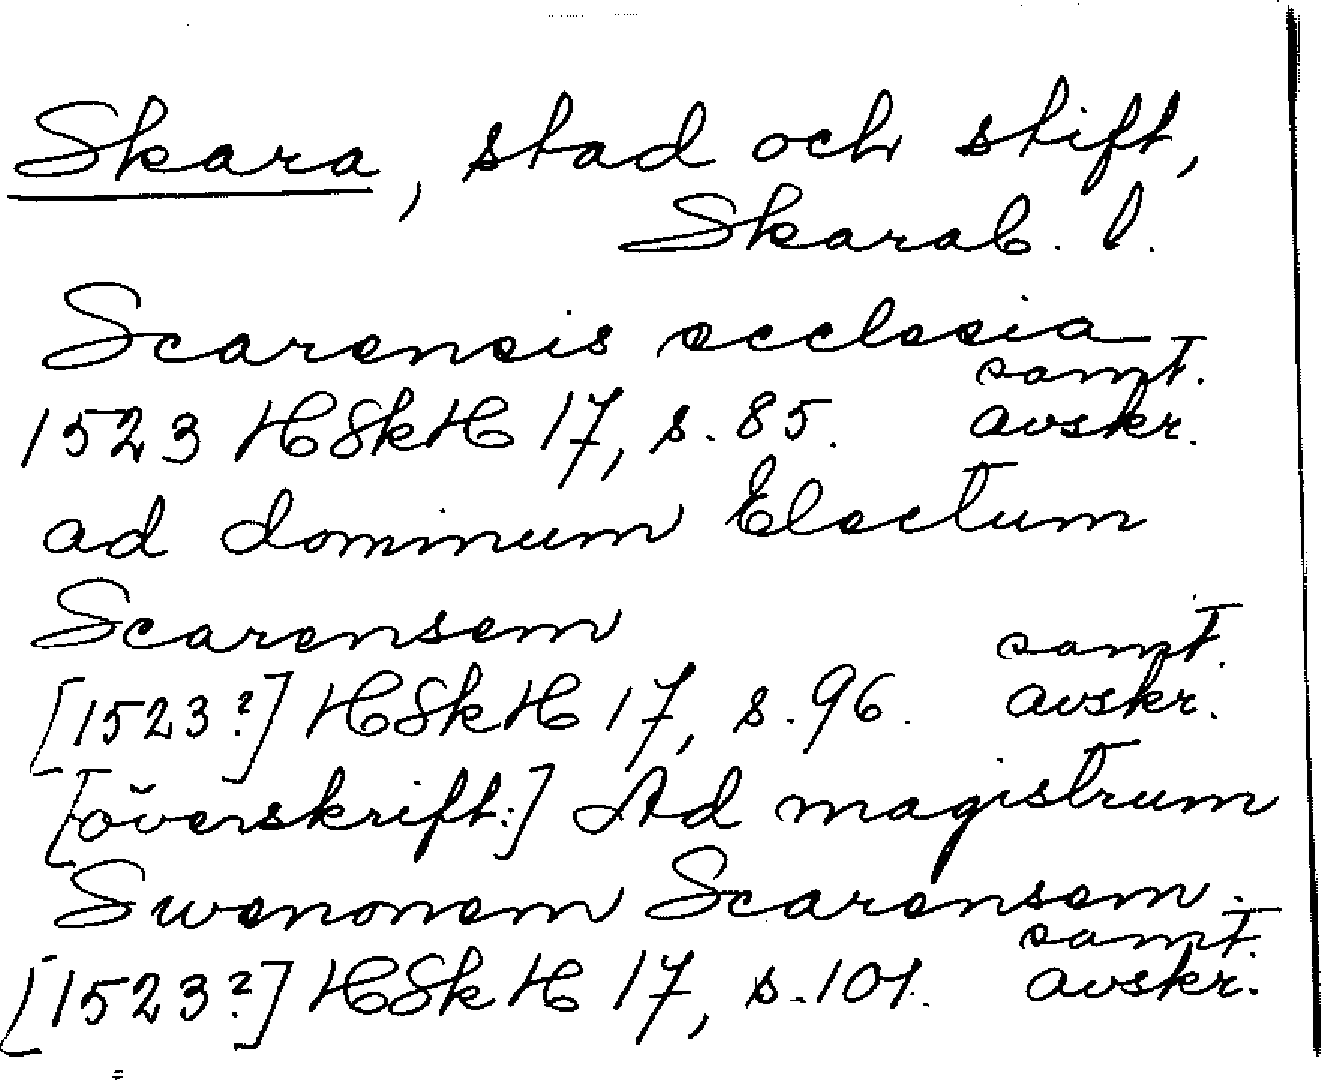 Skara, stad och stift,
Skarab. l.
Scarensis ecclesia
samt.
1523 HSkH 17, s. 85. avskr.
ad dominum Electum
Scarensem
samt.
[1523?] HSkH 17, s. 96. avskr.
[överskrift:] Ad magistrum
Swenonem Scarensem.
samt.
[1523?] HSkH 17, s. 101. avskr.